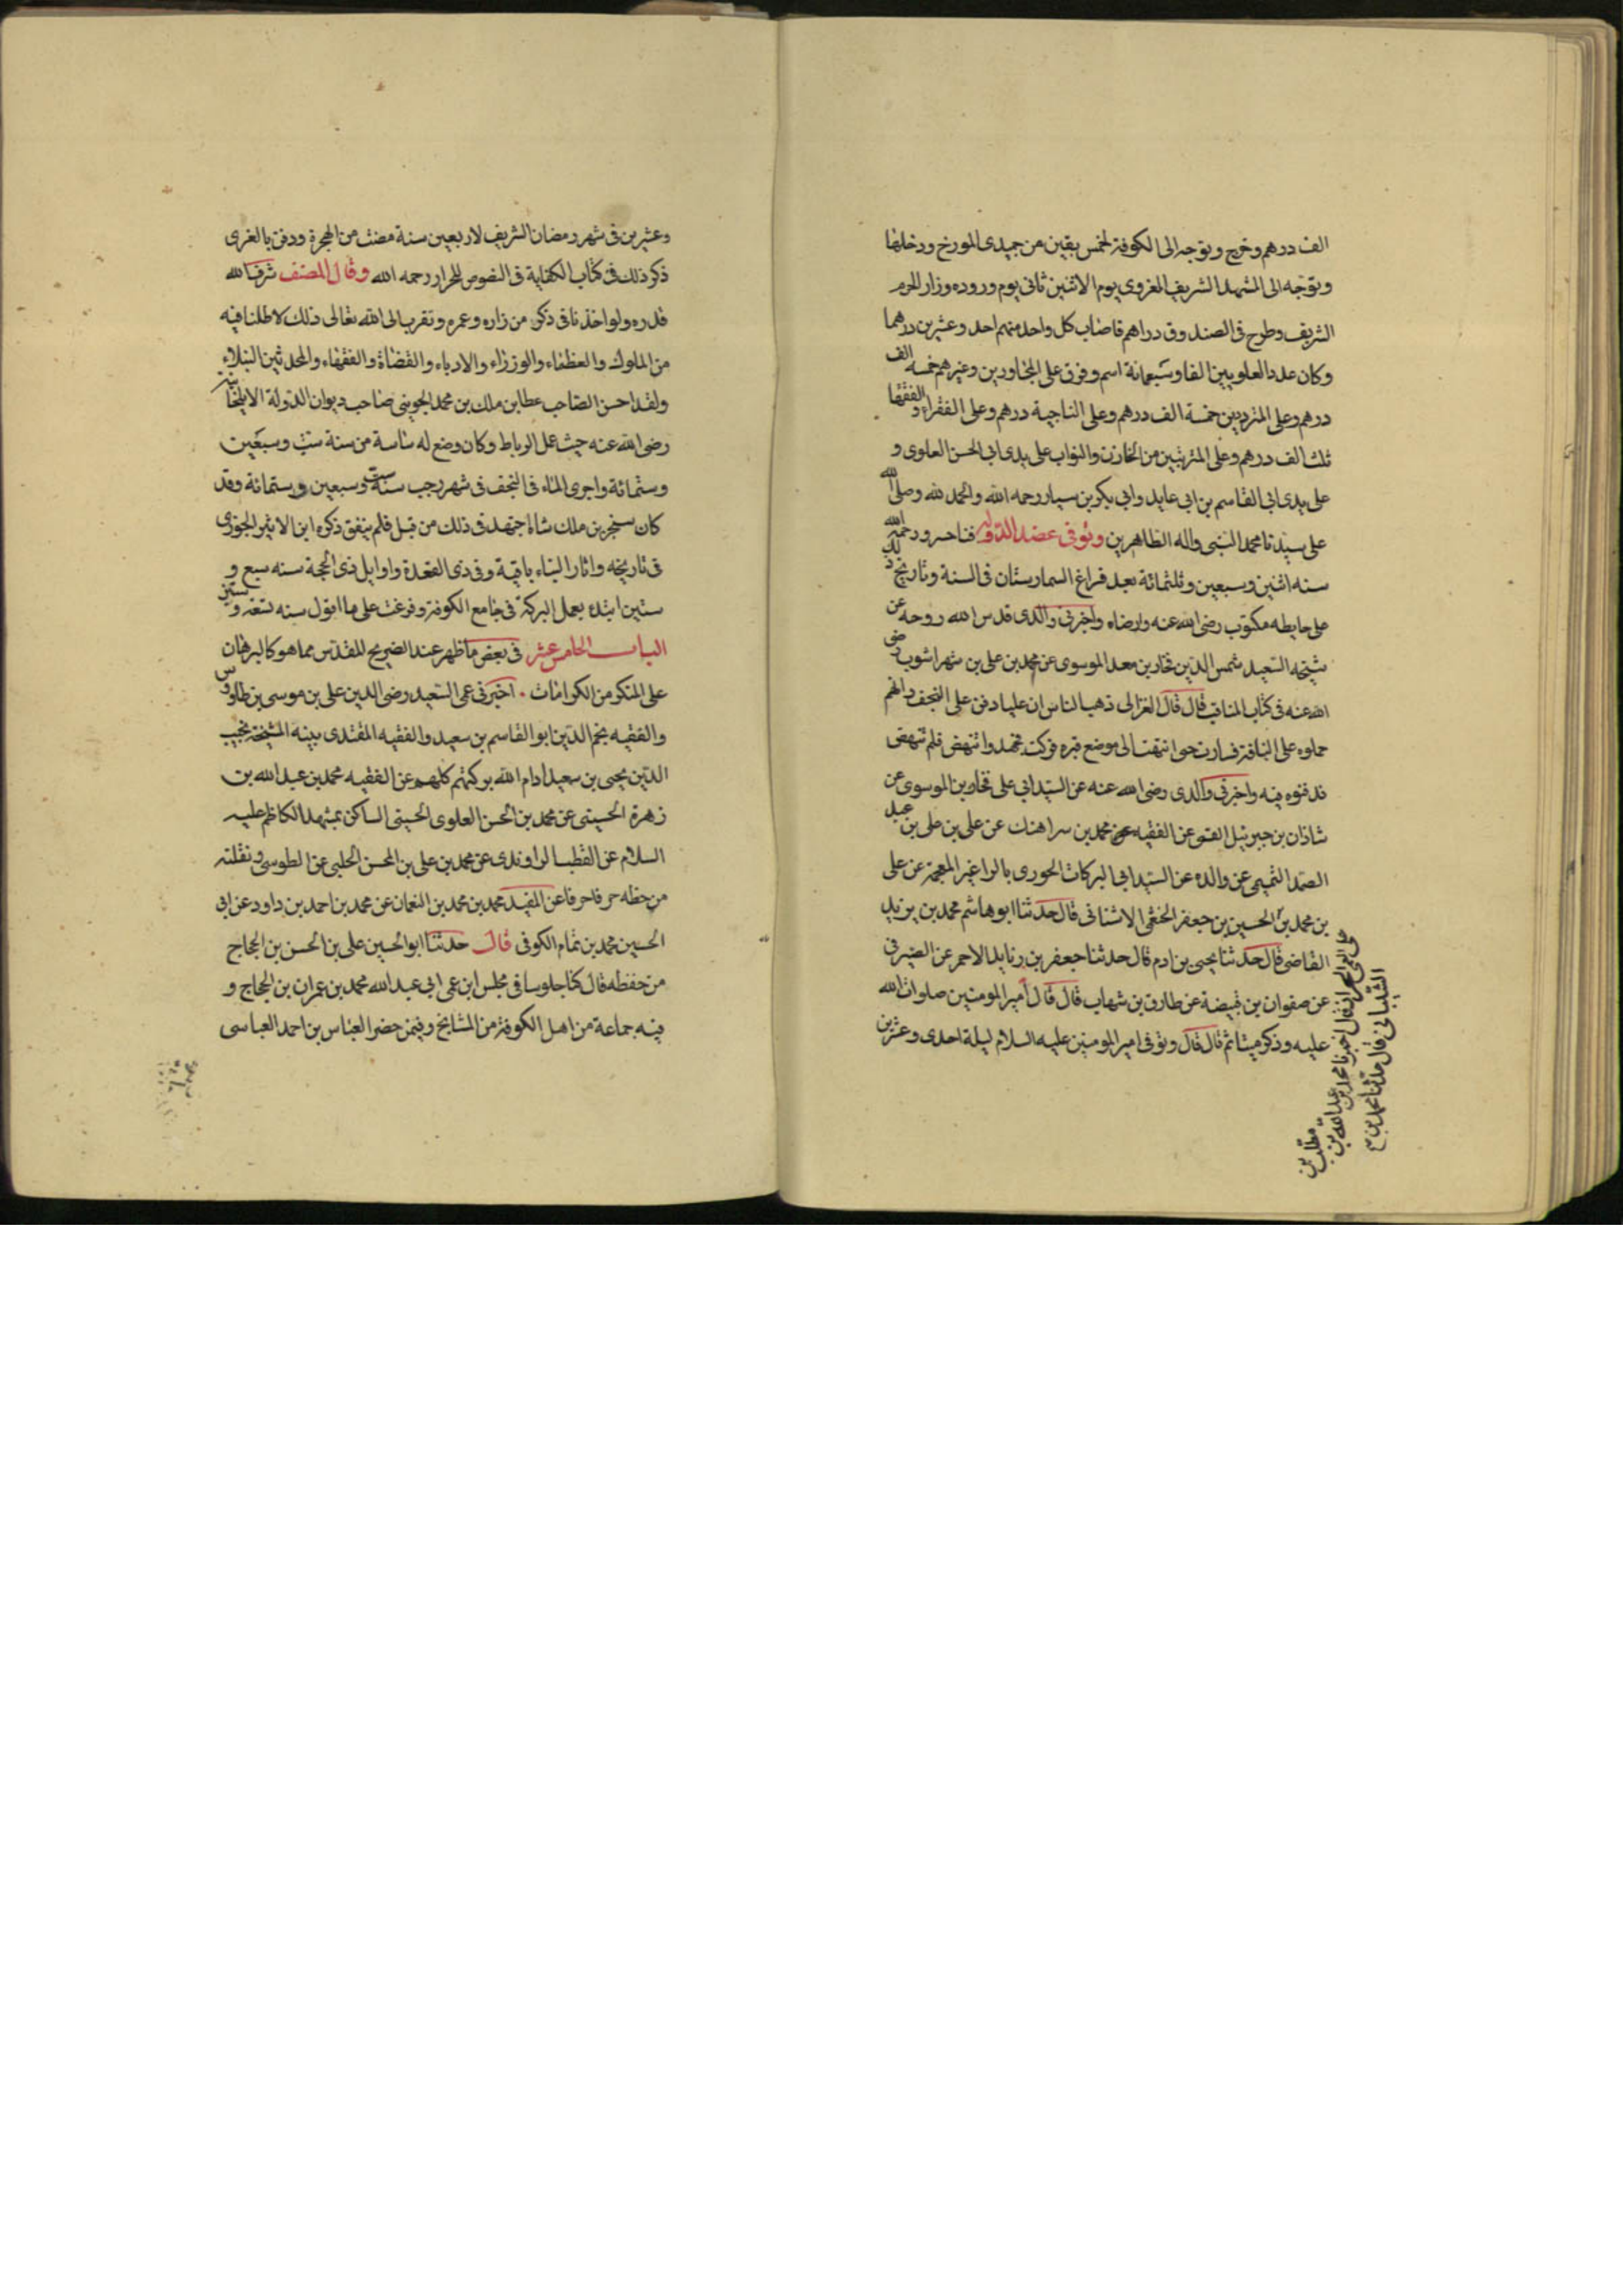 الف درهم وخرج وتوجه الى الكوفة لخمس بقين من جميدى المورخ ودخلها
وتوجّه الى المشهد الشريف الغروى يوم الاثنين ثانى يوم وروده وزار الحرم
الشريف وطرح فى الصندوق دراهم فاصاب كل واحد منهم احد وعشرين درهما
وكان عدد العلويين الفا وسبعمائة اسم وفرق على المجاورين وغيرهم خمسة الف
درهم وعلى المترددين خمسة الف درهم وعلى الناجية درهم وعلى الفقراء والفقها
ثلث الف درهم وعلى المرتبين من الخازن والنواب على يدى ابى الحسن العلوى و
على يدى ابى القاسم بن ابى عابد وابى بكر بن سيار رحمه الله والحمد لله وصلى الله
على سيدنا محمد النبى واله الطاهرين وتوفى عضد الدولة فناخسرو رحمه الله
سنه اثنين وسبعين وثلثمائة بعد فراغ السمارستان فى السنة وتاريخ
على حايطه مكتوب رضى الله عنه وارضاه واخبرنى والدى قدس الله روحه عن
شيخه السعيد شمس الدين فخار بن معد الموسوى عن محمد بن على بن شهراشوب رضى
الله عنه فى كتاب المناقب قال قال الغزالى ذهب الناس ان عليا دفن على النجف وانهم
حملوه على الناقة فسارت حوا انتهت الى موضع قبره فبركت فجهدوا انتهض فلم تنهض
فدفنوه فيه واخبرنى والدى رضى الله عنه عن السيد ابى على فخار بن الموسوى عن
شاذان بن جبرئيل القمى عن الفقيه محمد بن سراهنك عن على بن على بن عبد
الصمد التميمى عن والده عن السيد ابى البركات الحورى بالرا غير المعجمة عن على
بن محمد بن الحسين بن جعفر الخثعمى الاشنانى قال حدثنا ابو هاشم محمد بن يزيد
القاضى قال حدثنا يحيى بن ادم قال حدثنا جعفر بن زياد الاحمر عن الصيرفى
عن صفوان بن قبيصة عن طارق بن شهاب قال قال امير المومنين صلوات الله
عليه وذكر ميتا ثم قال قال وتوفى امير المومنين عليه السلام ليلة احدى وعشرين
اخبرنا محمد بن عبد الله بن
الشيبانى قال حدثنا محمد بن
وعشرين فى شهر رمضان الشريف لاربعين سنة مضت من الهجرة ودفن بالغرى
ذكر ذلك فى كتاب الكفاية فى النصوص للخراز رحمه الله وقال المصنف شرف الله
قدره ولو اخذنا فى ذكر من زاره وعمره وتقرب الى الله تعالى ذلك لاطلنا فيه
من الملوك والعظماء والوزراء والادباء والقضاة والفقهاء والمحدثين النبلاء
ولقد احسن الصاحب عطا بن ملك بن محمد الجوينى صاحب ديوان الدولة الايلخانية
رضى الله عنه حيث عمل الرباط وكان وضع له ساسة من سنة ست وسبعين
وستمائة واجرى الماء فى النجف فى شهر رجب سنة ست وسبعين وستمائة وقد
كان سنجر بن ملك شاه اجتهد فى ذلك من قبل فلم يتفق ذكره ابن الاثير الجزرى
فى تاريخه واثار البناء باقية وفى ذى القعدة واوايل ذى الحجة سنه سبع و
ستين ابتدء بعمل البركة فى جامع الكوفة وفرغت على ما اقول سنه تسعة وستين
الباب الخامس عشر فى بعض ما ظهر عند الضريح المقدس مما هو كالبرهان
على المنكر من الكرامات ۰ اخبرنى عمى السعيد رضى الدين على بن موسى بن طاوس
والفقيه نجم الدين ابو القاسم بن سعيد والفقيه المقتدى بينه المشيخة نجيب
الدين يحيى بن سعيد ادام الله بركتهم كلهم عن الفقيه محمد بن عبد الله بن
زهرة الحسينى عن محمد بن الحسن العلوى الحسينى الساكن بمشهد الكاظم عليه
السلام عن القطب الراوندى عن محمد بن على بن المحسن الحلبى عن الطوسى ونقلته
من خطه حرفا حرفا عن المفيد محمد بن محمد بن النعمان عن محمد بن احمد بن داود عن ابى
الحسين محمد بن تمام الكوفى قال حدثنا ابو الحسين على بن الحسن بن الحجاج
من حفظه قال كنا جلوسا فى مجلس ابن عمى ابى عبد الله محمد بن عمران بن الحجاج و
فيه جماعة من اهل الكوفة من المشايخ وفيمن حضر العباس بن احمد العباسى